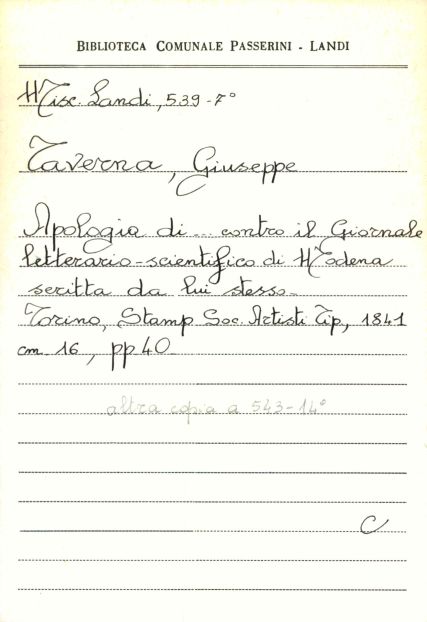 BIBLIOTECA COMUNALE PASSERINI - LANDI
Misc. Landi, 539-7°
Taverna, Giuseppe
Apologia di ... contro il Giornale
letterario-scientifico di Modena
scritta da lui stesso.
Torino, Stamp Soc. Artisti Tip, 1841
cm 16, pp 40
altra copia a 543-14°
C